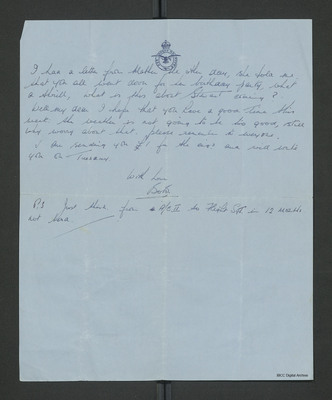 I had a letter from Mother the other day, she told me
that you all went down for her birthday party, what
a thrill, what is this about Stewart
Well my dear I hope that you have a good time this
week the weather is not going to be too good, still
why worry about that. please remember to everyone.
I am sending you £1 for the and will write
you on Tuesday.
With Love
P.S Just think from a to Flight Sgt in 12 months
not bad.
IBCC Digital Archive